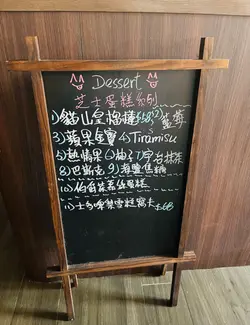 Dessert
芝士蛋糕系列
1)貓山皇榴槤$68 2)藍莓
3)蘋果金寶 4)Tiramisu
5)熱情果 6)柚子 7)宇治抹茶
8)巴斯克 9)海鹽焦糖
10)伯爵茶千層蛋糕
11)士多啤梨雪糕窩夫 $68